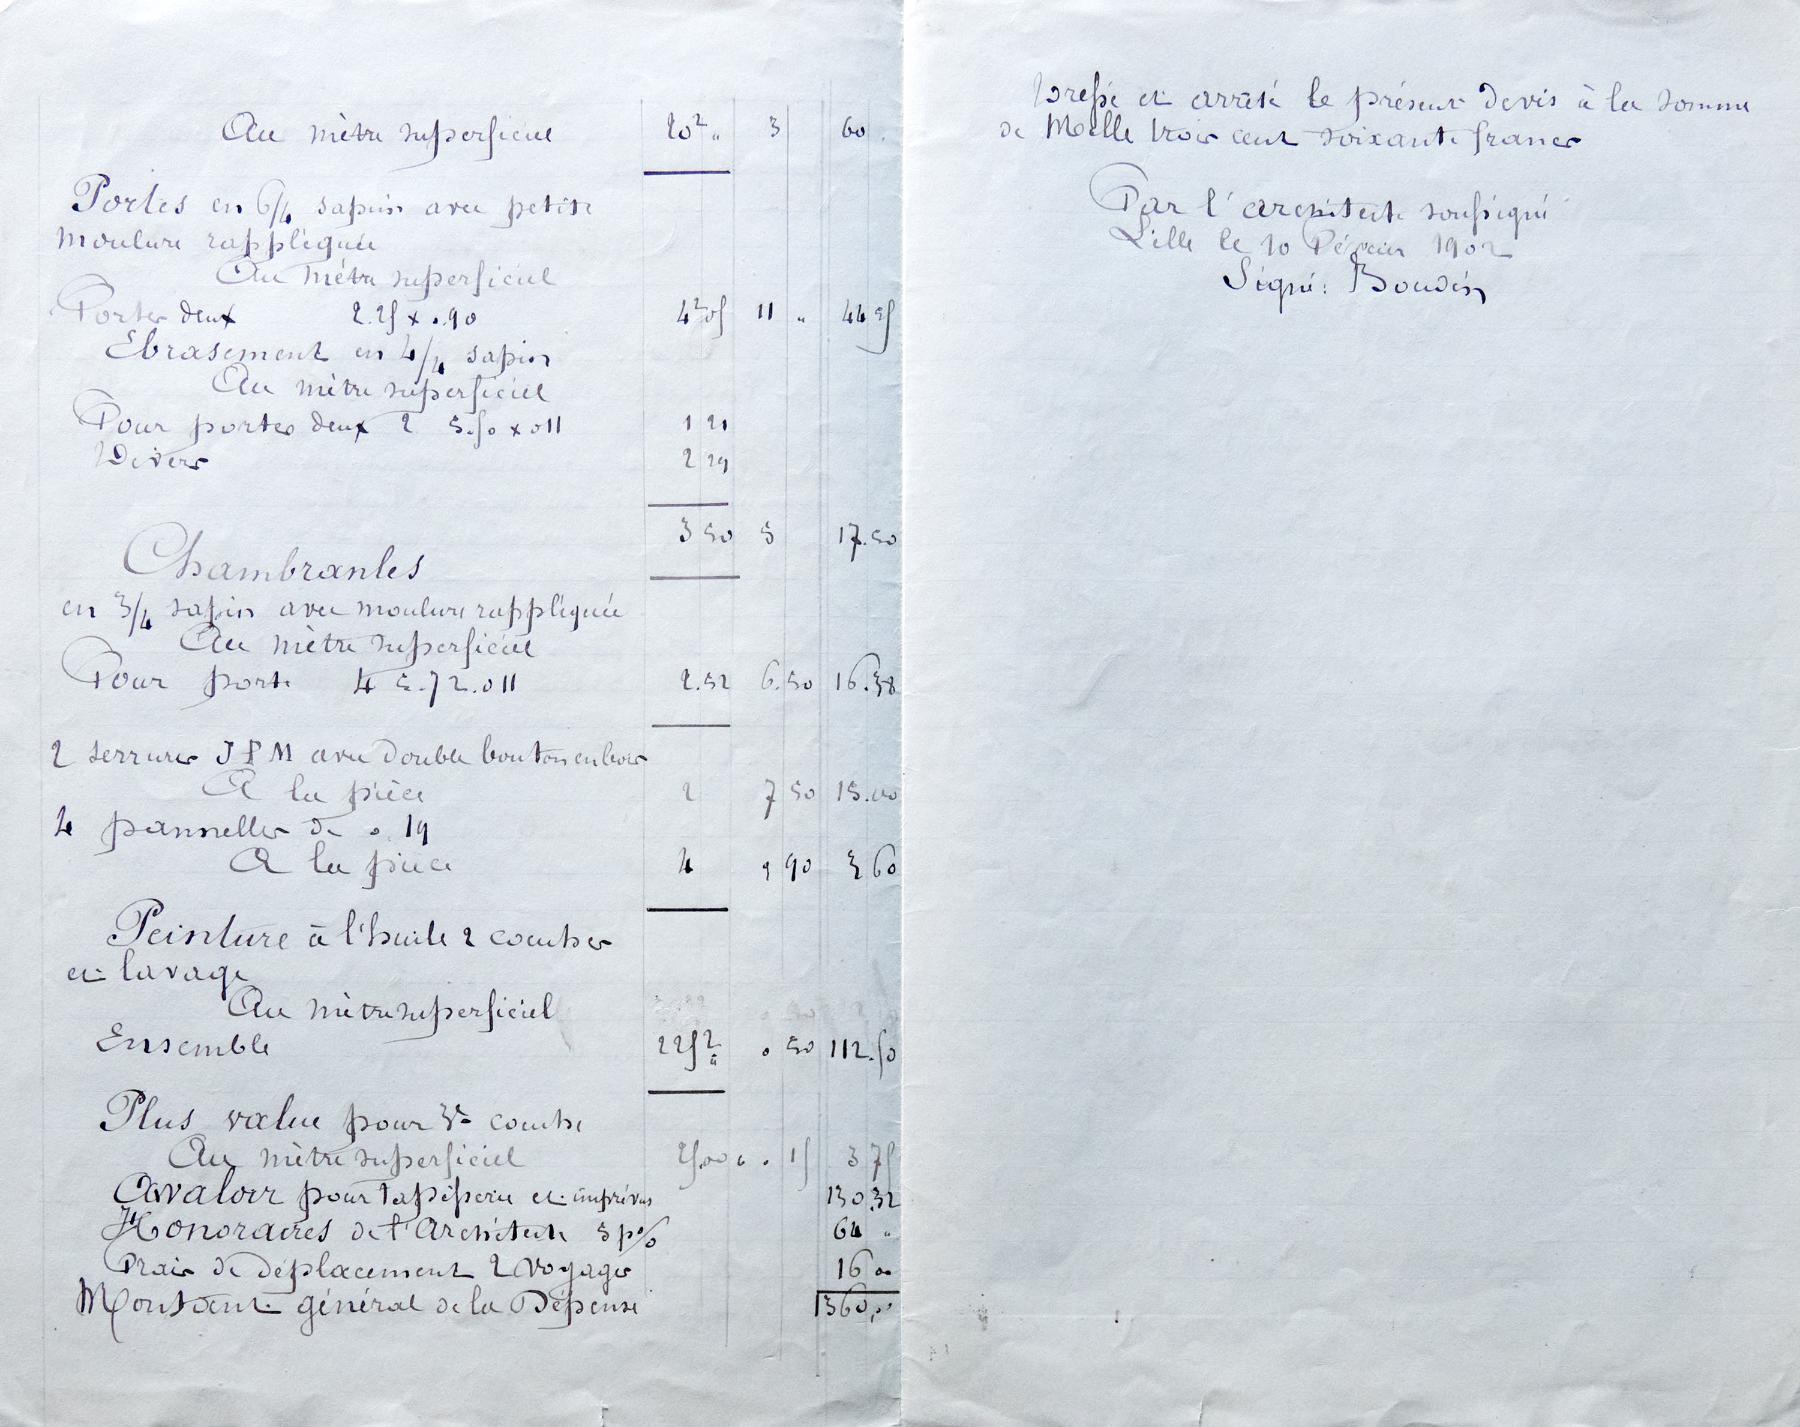 Au mètre superficiel 20² „ 3 60 .
Portes en 6/4 sapin avec petite
moulure rappliquée
Au mètre superficiel
Portes deux 2.25 x 0.90 4²05 11 „ 44 55
Ebrasement en 4/4 sapin
Au mètre superficiel
Pour portes deux 2 5.50 x 011 1 21
Divers 2 29
3 50 5 17.50
Chambranles
en 3/4 sapin avec moulure rappliquée
Au mètre superficiel
Pour porte 4 5.72.011 2.52 6.50 16.38
2 serrures J P M avec double bouton en bois
A la pièce 2 7 50 15.00
4 pannelles de 0 19
A la pièce 4 90 3 60
Peinture à l'huile 2 couches
et lavage
Au mètre superficiel
Ensemble 225² „ 0 50 112.50
Plus value pour 3e couche
Au mètre superficiel 25.00 0. 15 3 75
A valoir pour tapisserie et imprévus 130.32
Honoraires de l'Architecte 5 p% 64 „
Frais de déplacement 2 voyages 16 00
Montant général de la Dépense 1360,00
Dressé et arrêté le présent devis à la somme
de Mille trois cent soixante francs
Par l'architecte soussigné
Lille le 10 Février 1902
Signé: Boudin